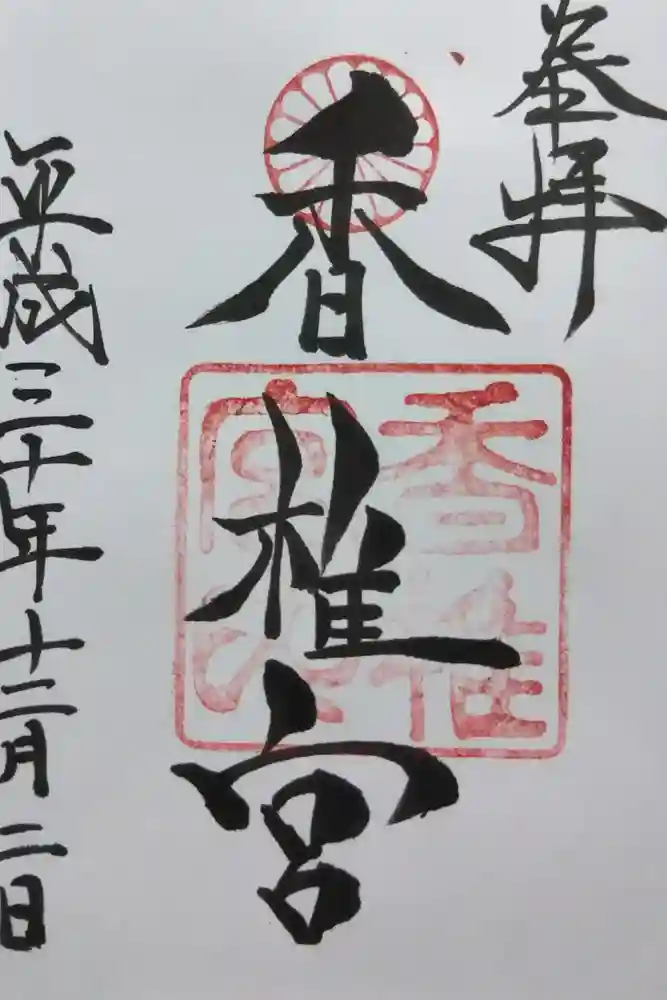 奉拝
香椎宮
平成三十年十二月二日
香椎宮印